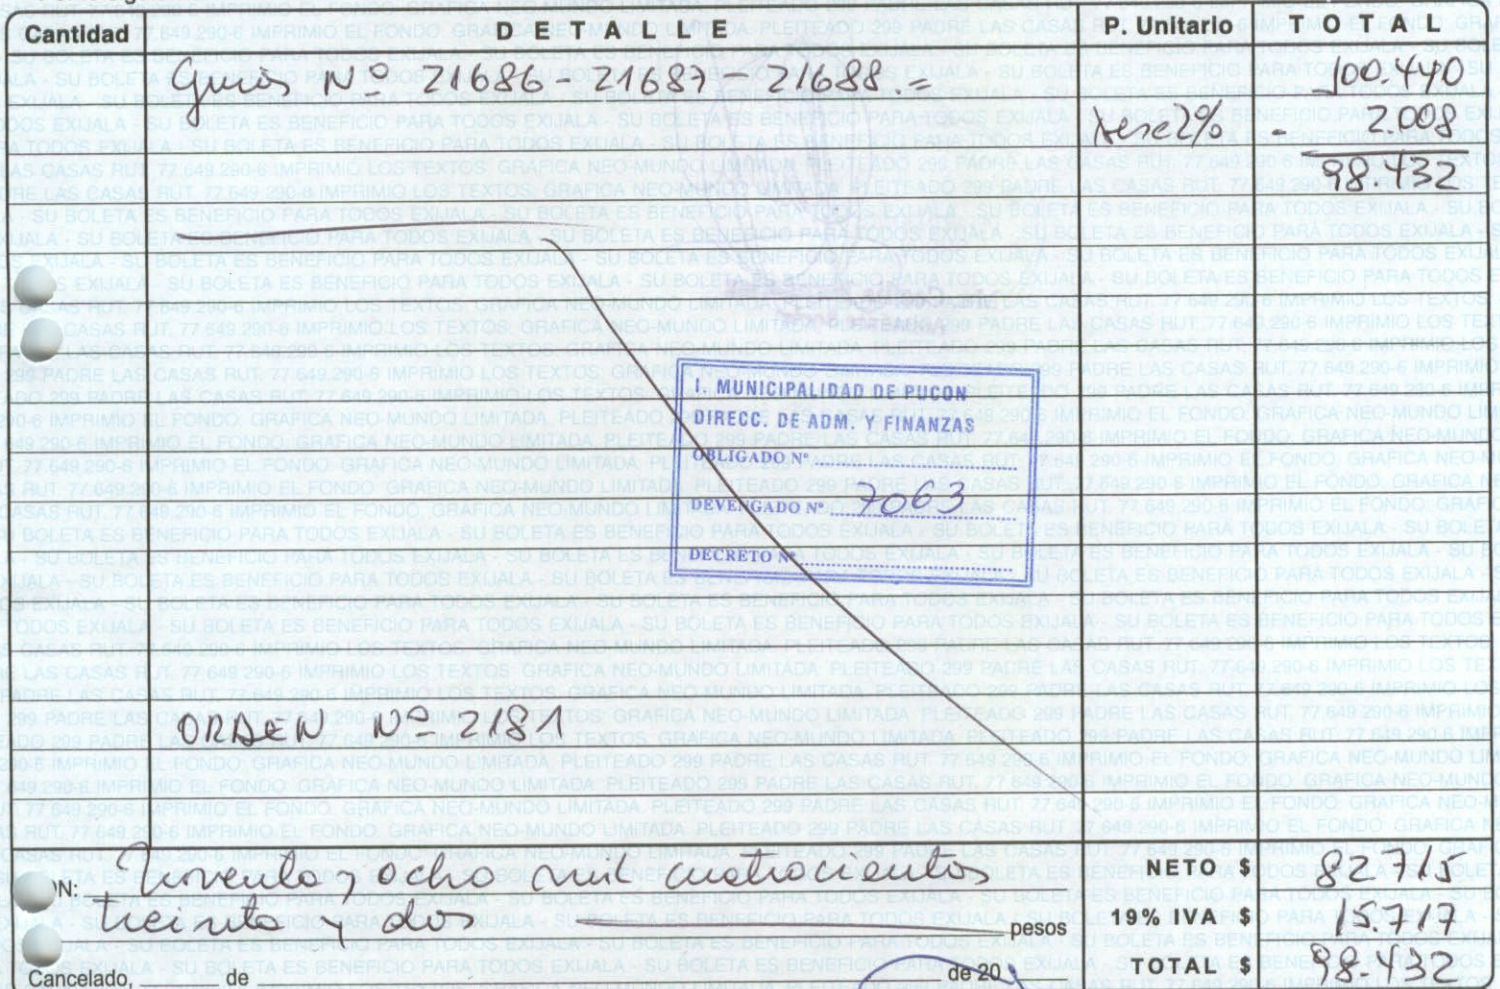 Cantidad DETALLE P. Unitario TOTAL
Guias Nº 21686 - 21687 - 21688.- 100.440
Desc 2% - 2008
98.432
I. MUNICIPALIDAD DE PUCON
DIRECC. DE ADM. Y FINANZAS
OBLIGADO Nº
DEVENGADO Nº 7063
DECRETO Nº
ORDEN Nº 281
NETO $ 82.715
ON: Noventa y ocho mil cuatrocientos
treinta y dos pesos
19% IVA $ 15.717
TOTAL $ 98.432
Cancelado, de de 20